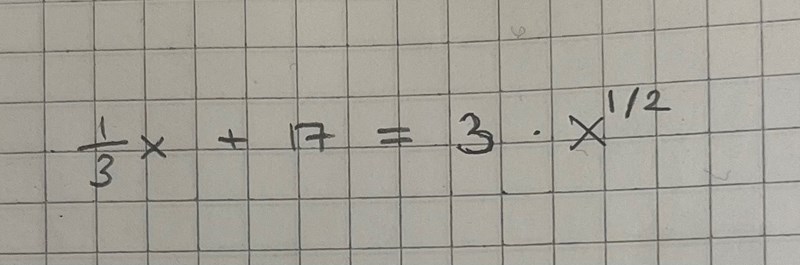 1/3 x + 17 = 3 · x^1/2